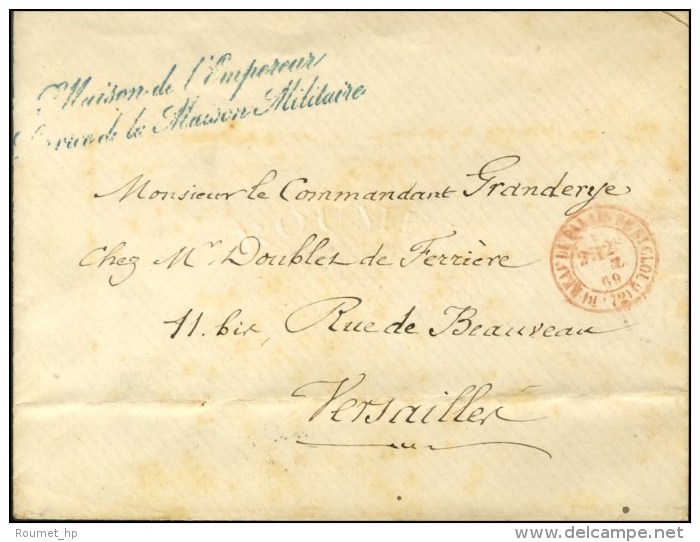 Maison de l'Empereur
Service de la Maison Militaire
Monsieur le Commandant Granderye
Chez Mr. Doublet de Ferrière
11. bis, Rue de Beauveau
Versailles
BUREAU DU PALAIS DE ST CLOUD (72)
69
Roumet_hp
© www.delcampe.net